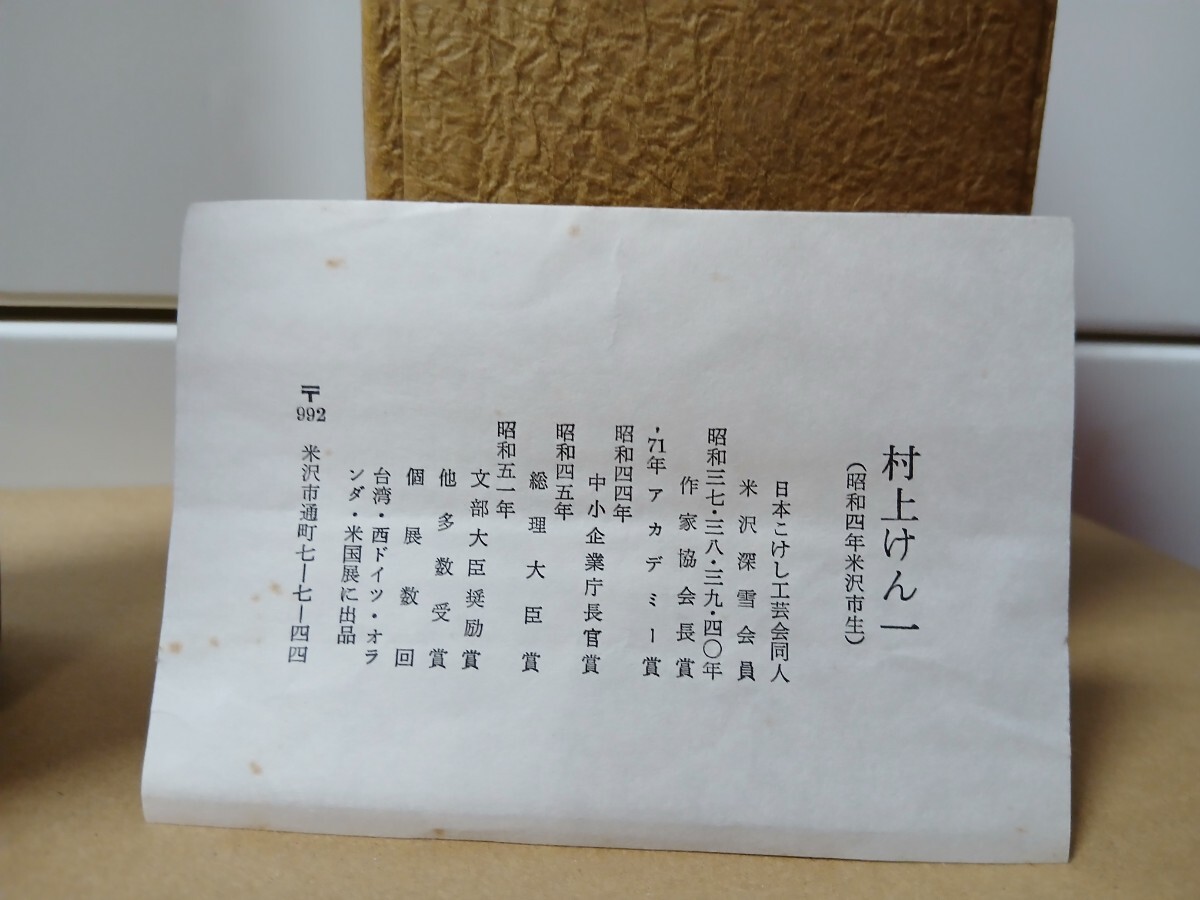 村上けん一
(昭和四年米沢市生)
日本こけし工芸会同人
米沢深雪会員
昭和三七・三八・三九・四〇年
作家協会長賞
'71年アカデミー賞
昭和四四年
中小企業庁長官賞
昭和四五年
総理大臣賞
昭和五一年
文部大臣奨励賞
他多数受賞
個展数回
台湾・西ドイツ・オラ
ンダ・米国展に出品
〒992 米沢市通町七ー七ー四四